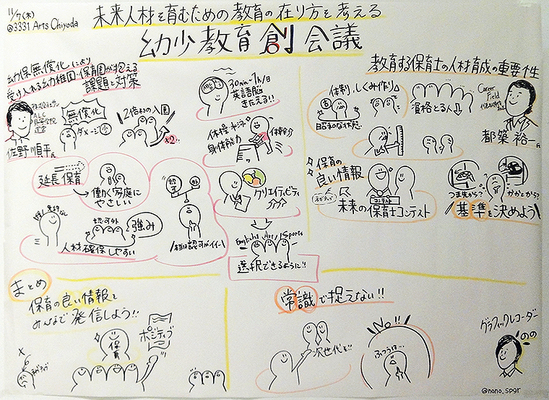 11/7(木)
@3331 Arts Chiyoda
未来人材を育むための教育の在り方を考える
幼少教育創会議
幼保無償化により
受け入れる幼稚園・保育園が抱える
課題と対策
無償化
2倍相の入園
×2
佐野順平
延長保育
働く家庭に
やさしい
認可外
強み
人材確保しやすい
30min〜1h/日
英語脳
きたえる!!
体操
身体能力
クリエイティビティ
English
Art
Sports
選択できるように!!
教育する保育士の人材育成の重要性
体制、しくみ作り
昭和な状態
資格とる人
Career
Field
都築 裕一
保育の
良い情報
未来の保育士コンテスト
つま先から?
かかとから?
基準を決めよう
まとめ
保育の良い情報を
みんなで発信しよう!!
保育
ポジティブ
常識で捉えない!!
次世代も
ふつうは…
グラフィックレコーダー
のの
@nono_spgr